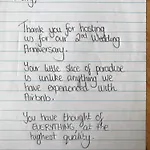 Thank you for hosting
us for our 2nd Wedding
Anniversary.
Your little slice of paradise
is unlike anything we
have experienced with
Airbnb.
You have thought of
EVERYTHING at the
highest quality.